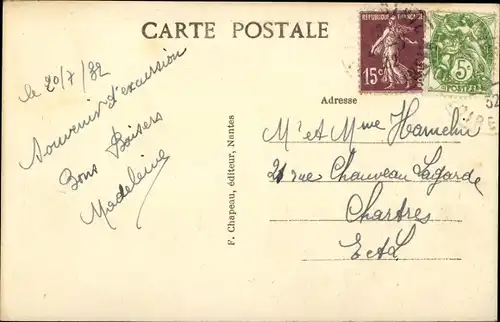 CARTE POSTALE
REPUBLIQUE FRANÇAISE
15c
5c
POSTES
32
le 20/7/32
Souvenir d'excursion
Bons Baisers
Madeleine
F. Chapeau, éditeur, Nantes
Adresse
Mr et Mme Hamelin
21 rue Chauveau Lagarde
Chartres
E et L